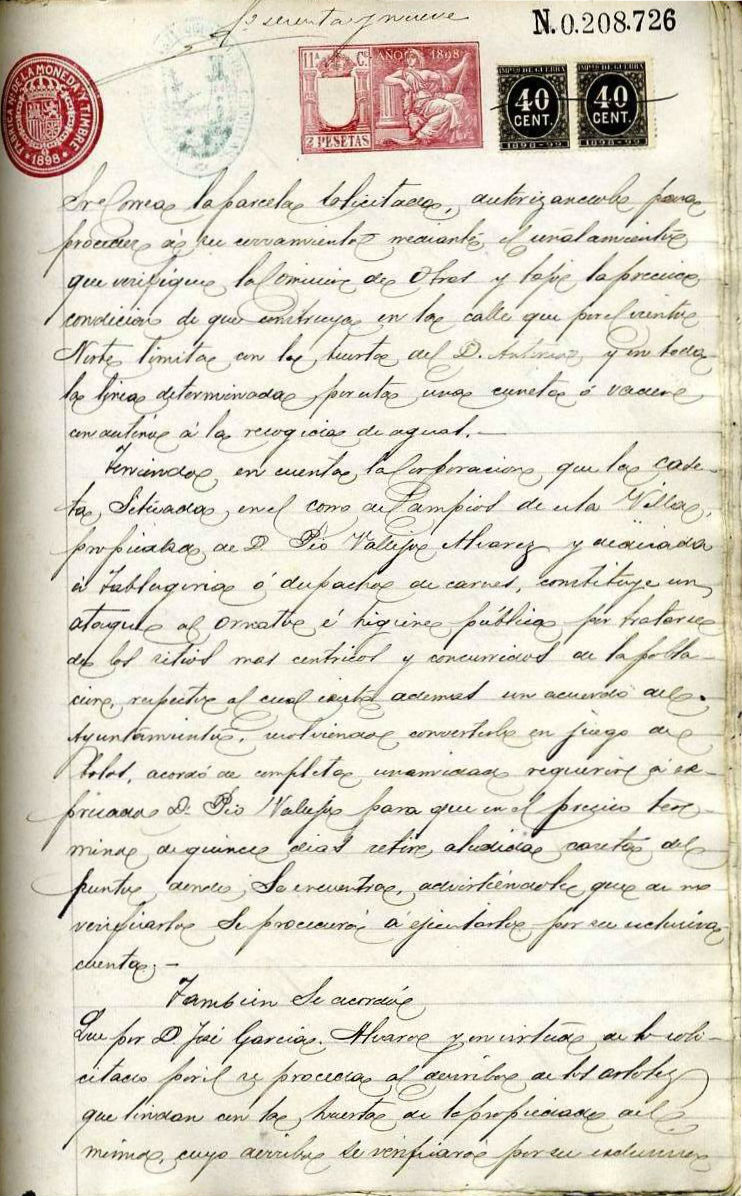 Fº sesenta y nueve
N.0.208.726
FABRICA Nº DE LA MONEDA Y TIMBRE
1898
11ª C.
AÑO 1898
2 PESETAS
IMPtº DE GUERRA
40
CENT.
1898-99
IMPtº DE GUERRA
40
CENT.
1898-99
la parcela solicitada, autorizandole para
proceder á su cerramiento mediante el señalamiento
que verifique la Comision de Obras y bajo la precisa
condicion de que construya en la calle que por el viento
Norte limita con la huerta del D. Antonio y en toda
la linea determinada por esta una cuneta ó
á la recogida de aguas.
Teniendo en cuenta la Corporacion que la case-
ta situada en el corro del Campios de esta Villa,
propiedad de D. Pio Vallejo Alvarez y dedicada
á tablageria ó despacho de carnes, constituye un
ataque al ornato é higiene pública por tratarse
de los sitios mas centricos y concurridos de la pobla-
cion, respecto al cual existe ademas un acuerdo del
Ayuntamiento, convertirle en juego de
bolos, acordó de completa unamidad requerir á ex-
presado D. Pio Vallejo para que en el preciso ter-
mino de quince dias retire aludida caseta del
punto donde se encuentra, advirtiéndole que de no
verificarlo se procederá á ejecutarlo por su exclusiva
cuenta.
Tambien se acordó
Que por D. José Garcia Alvarez y en virtud de lo soli-
citado por él se proceda al derribo de los arboles
que lindan con la huerta de la propiedad del
mismo, cuyo derribo se verificará por su exclusiva